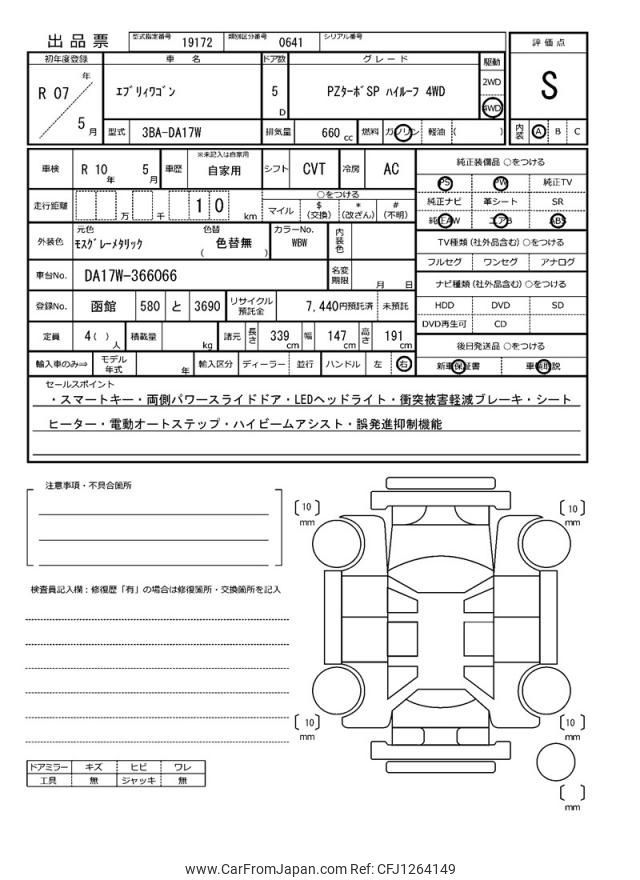 出品票 型式指定番号 19172 類別区分番号 0641 シリアル番号
評価点
S
内装 A B C
初年度登録 車名 ドア数 グレード 駆動
R 07 年 5 月
エブリィワゴン
5 D
PZターボSP ハイルーフ 4WD
2WD
4WD
型式 3BA-DA17W 排気量 660 cc 燃料 ガソリン 軽油 ( )
車検 R 10 年 5 月 車歴 ※未記入は自家用 自家用 シフト CVT 冷房 AC
走行距離 万 千 1 0 km
○をつける
マイル $(交換) *(改ざん) #(不明)
外装色 元色 モスグレーメタリック 色替 ( 色替無 ) カラーNo. WBW 内装色
車台No. DA17W-366066 名変期限 月 日
登録No. 函館 580 と 3690 リサイクル預託金 7,440円預託済 未預託
定員 4( ) 人 積載量 kg 諸元 長さ 339 cm 幅 147 cm 高さ 191 cm
輸入車のみ⇒ モデル年式 年 輸入区分 ディーラー 並行 ハンドル 左 右
純正装備品 ○をつける
PS PW 純正TV
純正ナビ 革シート SR
純正AW エアB ABS
TV種類 (社外品含む) ○をつける
フルセグ ワンセグ アナログ
ナビ種類 (社外品含む) ○をつける
HDD DVD SD
DVD再生可 CD
後日発送品 ○をつける
新車保証書 車輌取説
セールスポイント
・スマートキー・両側パワースライドドア・LEDヘッドライト・衝突被害軽減ブレーキ・シート
ヒーター・電動オートステップ・ハイビームアシスト・誤発進抑制機能
注意事項・不具合箇所
検査員記入欄：修復歴「有」の場合は修復箇所・交換箇所を記入
ドアミラー キズ ヒビ ワレ
工具 無 ジャッキ 無
[ 10 ] mm
[ 10 ] mm
[ 10 ] mm
[ 10 ] mm
[ ] mm
www.CarFromJapan.com Ref: CFJ1264149